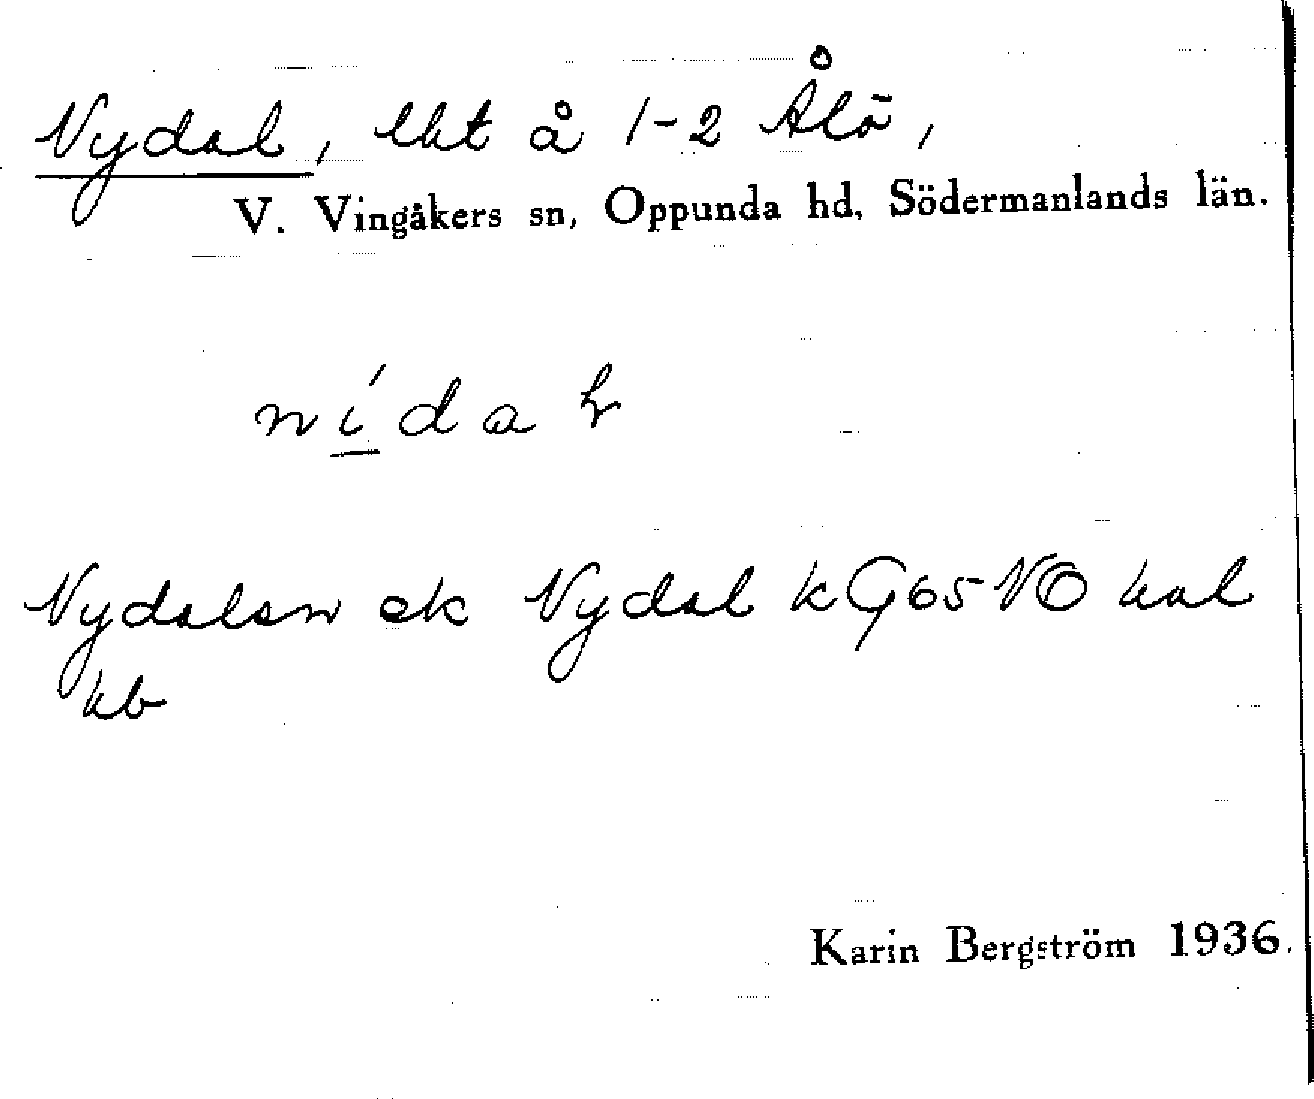 Nydal, lht å 1-2 Ålö,
V. Vingåkers sn, Oppunda hd, Södermanlands län.
Nydalen ek Nydal kG65NO hal
hb
Karin Bergström 1936.